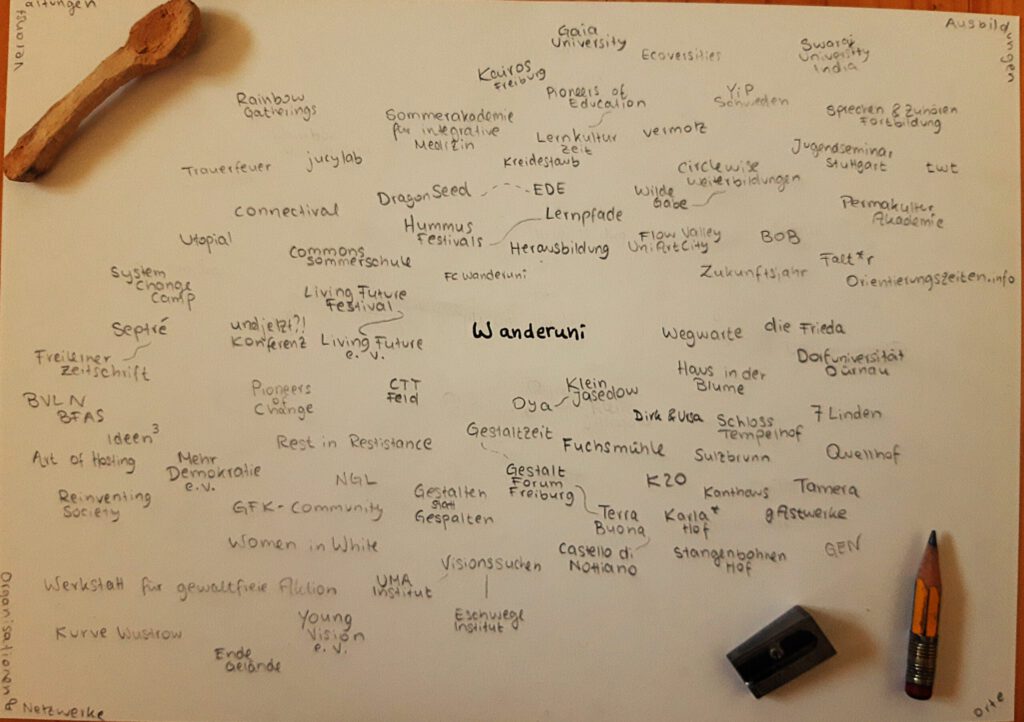 Veranstaltungen
Ausbildungen
Gaia
University
Ecoversities
Swaraj
University
India
Kairos
Freiburg
Pioneers of
Education
YiP
Schweden
Rainbow
Gatherings
Sommerakademie
für integrative
Medizin
Lernkultur
zeit
vermotz
Sprechen & Zuhören
Fortbildung
Trauerfeuer
jurylab
Kreidestaub
Circlewise
Weiterbildungen
Jugendseminar
Stuttgart
twt
DragonSeed
EDE
Wilde
Gabe
Connectival
Hummus
Festivals
Lernpfade
Permakultur
Akademie
Utopial
Commons
Sommerschule
Herausbildung
Flow Valley
UniArtCity
BOB
Falt*r
System
Change
Camp
FC Wanderuni
Zukunftsjahr
Orientierungszeiten.info
Living Future
Festival
Septré
undjetzt?!
Konferenz
Living Future
e.V.
Wanderuni
Wegwarte
die Frieda
Freileiner
Zeitschrift
Dorfuniversität
Dürnau
BVLN
BFAS
Pioneers
of
Change
CTT
Feld
Oya
Klein
Jasedow
Haus in der
Blume
Ideen³
Rest in Restistance
Gestaltzeit
Dirk & Usa
Schloss
Tempelhof
7 Linden
Art of Hosting
Mehr
Demokratie
e.V.
Fuchsmühle
Sulzbrunn
Quellhof
NGL
Gestalt
Forum
Freiburg
K20
Kanthaus
Tamera
Reinventing
Society
GFK-Community
Gestalten
statt
Gespalten
Terra
Buona
Karla*
Hof
gAstwerke
Women in White
Visionssuchen
Castello di
Nottiano
Stangenbohnen
Hof
GEN
Werkstatt für gewaltfreie Aktion
UMA
Institut
Kurve Wustrow
Young
Vision
e.V.
Eschwege
Institut
Ende
Gelände
Organisationen &
Netzwerke
Orte